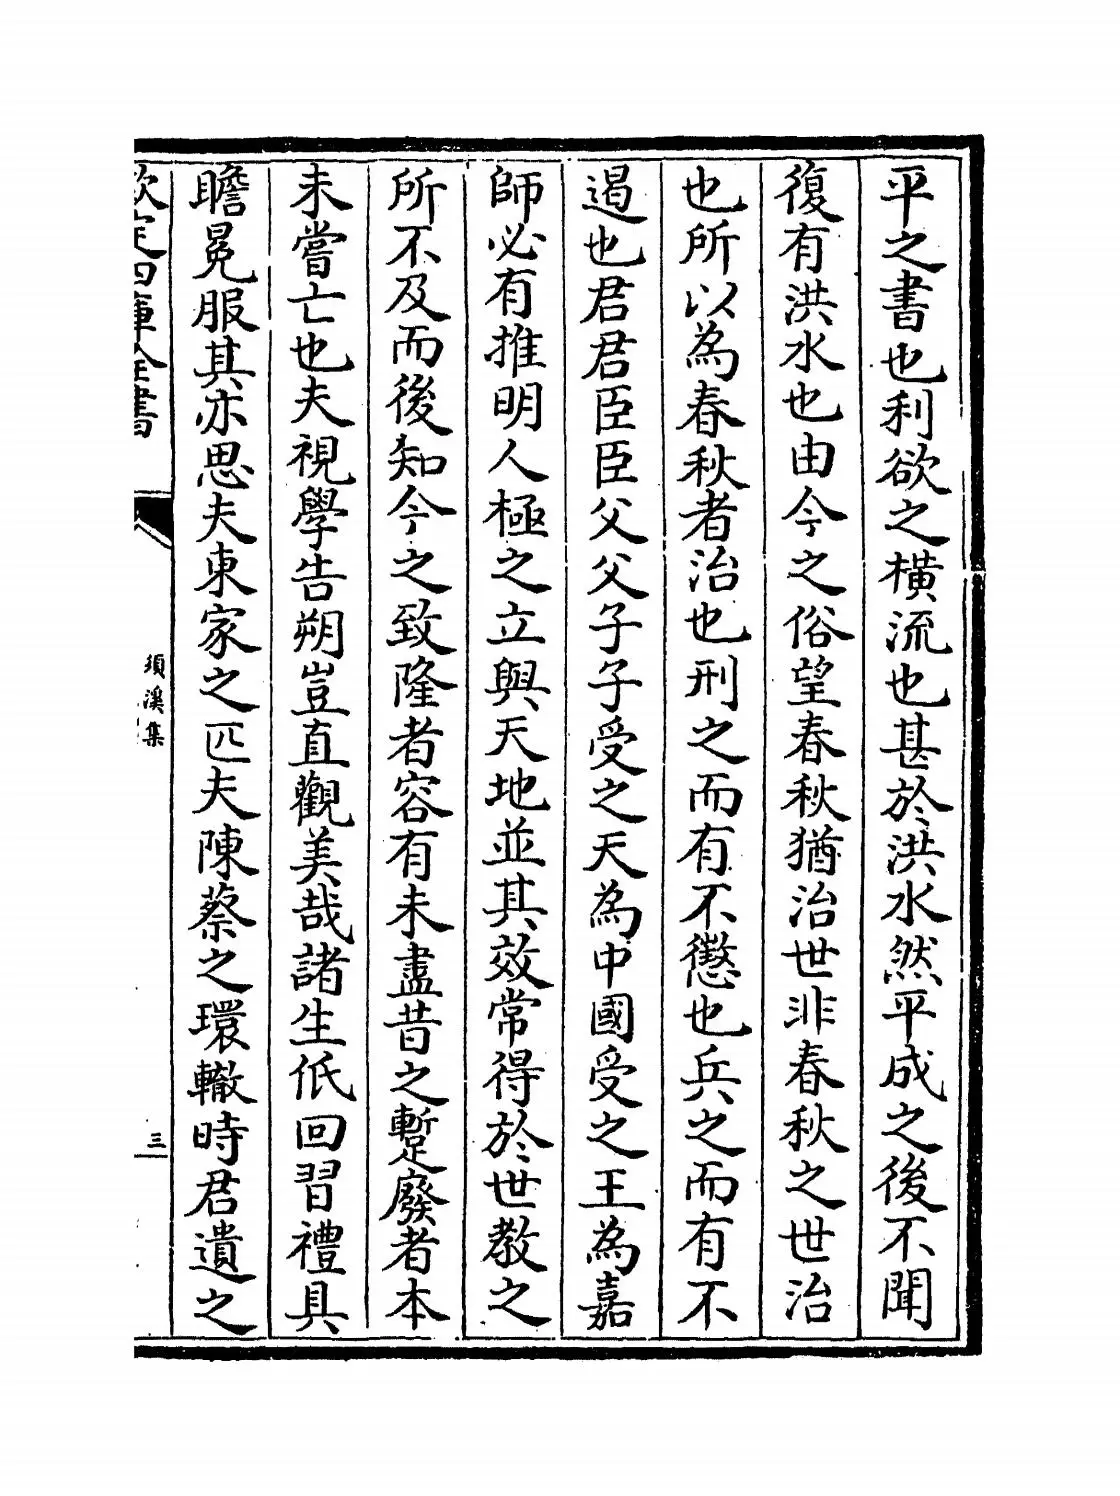 平之書也利欲之橫流也甚於洪水然平成之後不聞
復有洪水也由今之俗望春秋猶治世非春秋之世治
也所以為春秋者治也刑之而有不懲也兵之而有不
遏也君君臣臣父父子子受之天為中國受之王為嘉
師必有推明人極之立與天地並其效常得於世教之
所不及而後知今之致隆者容有未盡昔之蹔廢者本
未嘗亡也夫視學告朔豈直觀美哉諸生低回習禮具
瞻冕服其亦思夫東家之匹夫陳蔡之環轍時君遺之
欽定四庫全書
須溪集
三